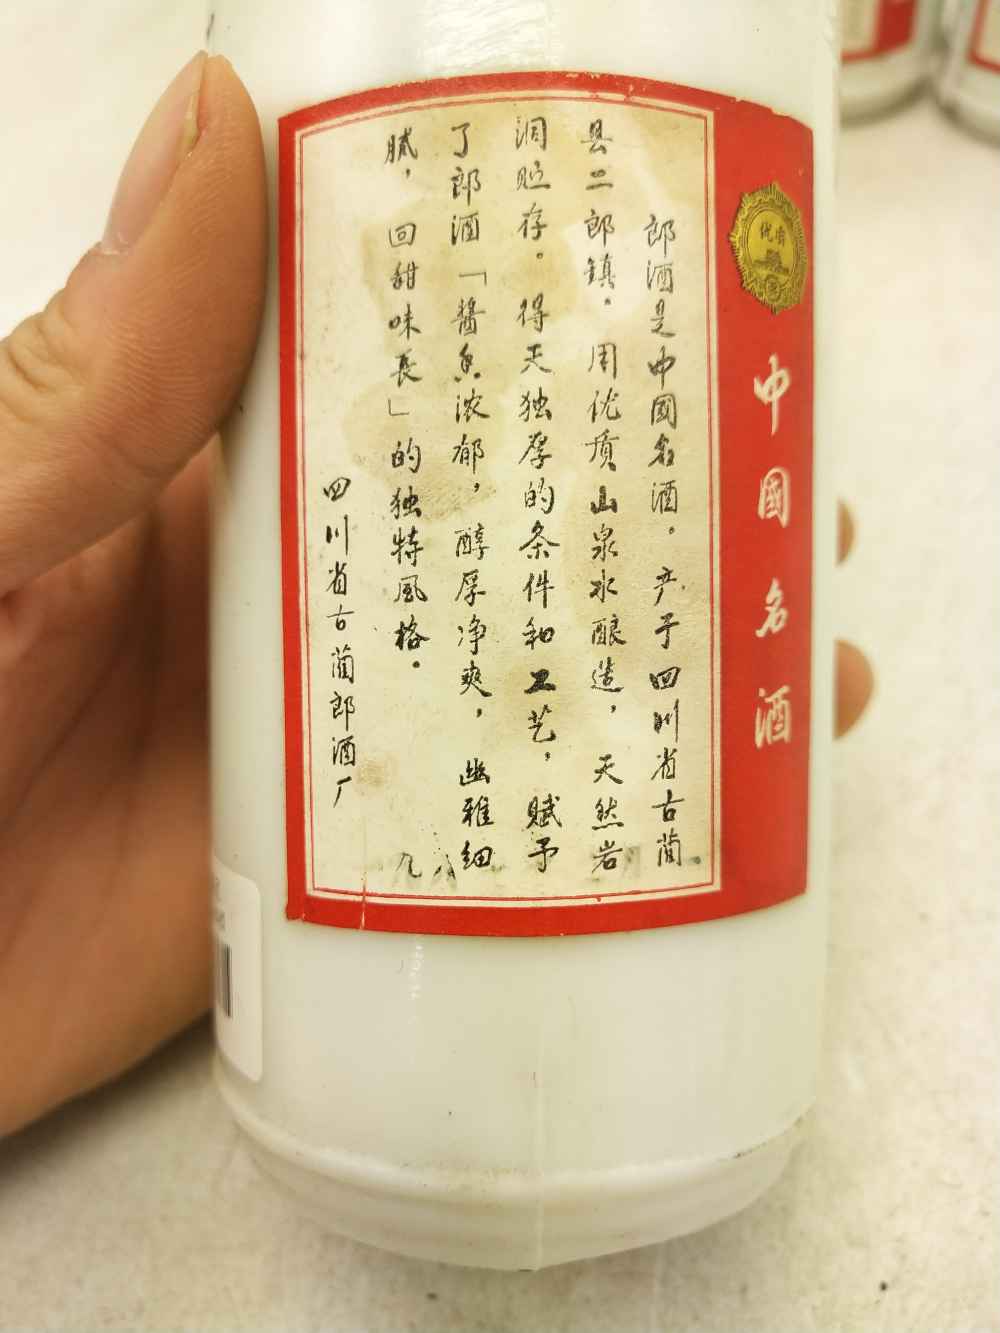 优质
中國名酒
郎酒是中國名酒。产于四川省古蔺
县二郎镇.用优质山泉水酿造，天然岩
洞贮存。得天独厚的条件和工艺，赋予
了郎酒「酱香浓郁，醇厚净爽，幽雅细
腻，回甜味長」的独特風格.
四川省古蔺郎酒厂